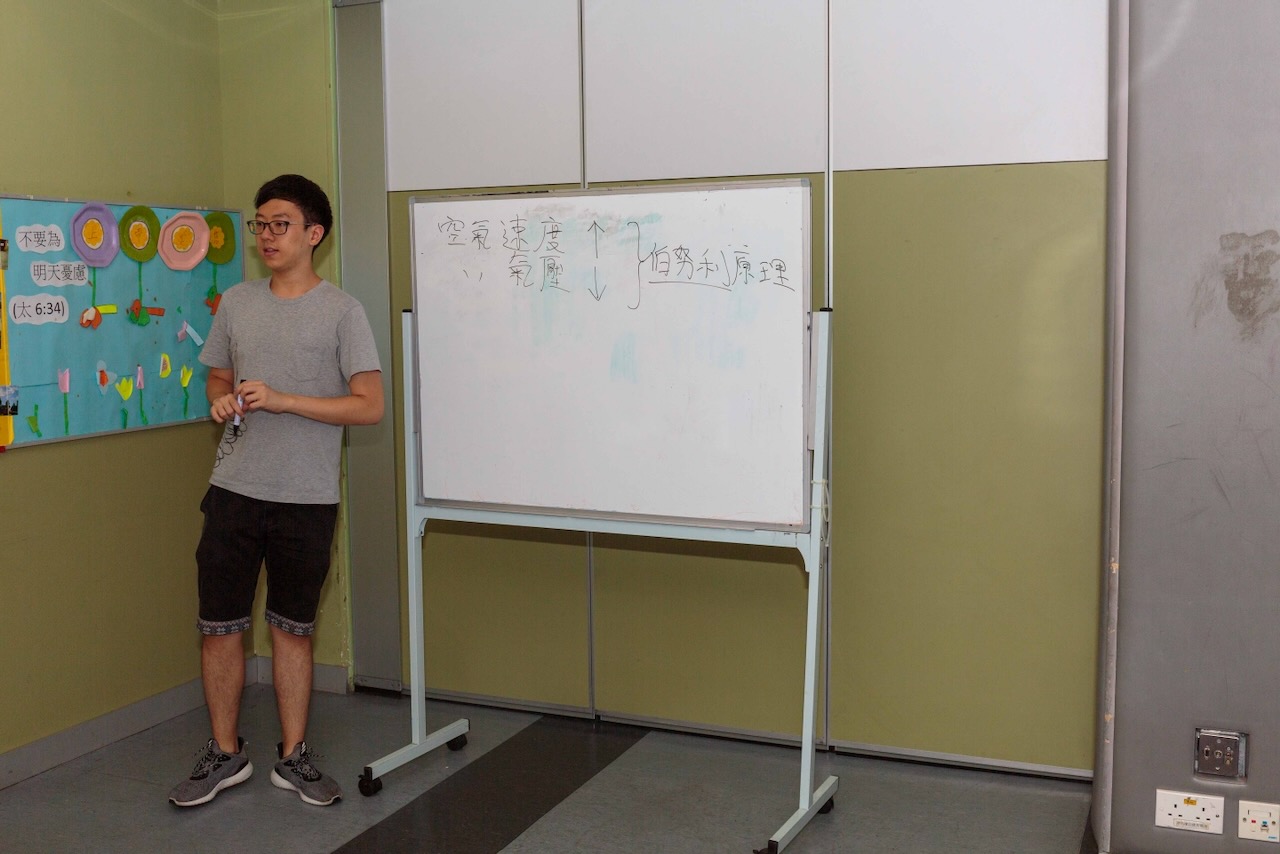 不要為
明天憂慮
(太 6:34)
空氣速度 ↑
〃 氣壓 ↓
} 伯努利原理